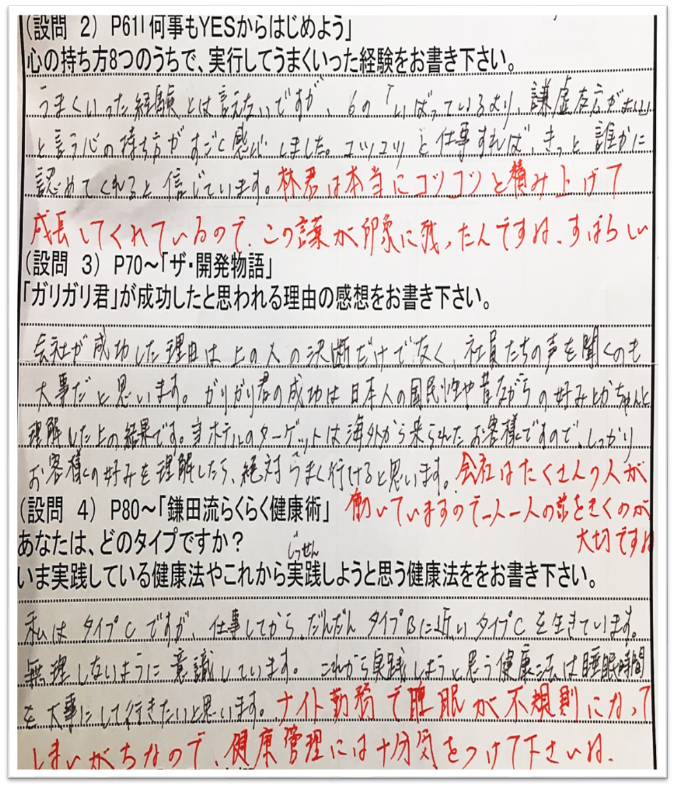 (設問 2) P61「何事もYESからはじめよう」
心の持ち方8つのうちで、実行してうまくいった経験をお書き下さい。
うまくいった経験とは言えないですが、6の「いばっているより、謙虚な方がおおい」
と言う心の持ち方がすごく感心しました。コツコツと仕事すれば、きっと誰かに
認めてくれると信じています。林君は本当にコツコツと積み上げて
成長してくれているので、この言葉が印象に残ったんですね。すばらしい
(設問 3) P70～「ザ・開発物語」
「ガリガリ君」が成功したと思われる理由の感想をお書き下さい。
会社が成功した理由は上の人の決断だけでなく、社員たちの声を聞くのも
大事だと思います。ガリガリ君の成功は日本人の国民性や昔ながらの好みとかちゃんと
理解した上の結果です。当ホテルのターゲットは海外から来られたお客様ですので、しっかり
お客様の好みを理解したら、絶対うまく行けると思います。会社はたくさんの人が
(設問 4) P80～「鎌田流らくらく健康術」 働いていますので一人一人の声をきくのが
あなたは、どのタイプですか? 大切ですね
じっせん
いま実践している健康法やこれから実践しようと思う健康法ををお書き下さい。
私はタイプCですが、仕事してから、だんだんタイプBに近いタイプCを生きています。
無理しないように意識しています。これから実践しようと思う健康法は睡眠時間
を大事にして行きたいと思います。ナイト勤務で睡眠が不規則になって
しまいがちなので、健康管理には十分気をつけて下さいね。